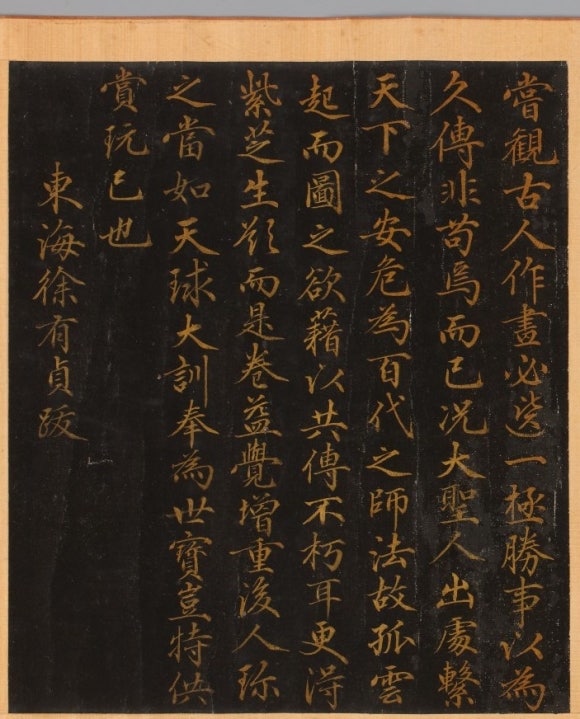 嘗觀古人作畫必選一極勝事以為
久傳非苟焉而已况大聖人出處繫
天下之安危為百代之師法故孤雲
起而圖之欲藉以共傳不朽耳更淂
紫芝生欵而是卷益覺增重後人珎
之當如天球大訓奉為世寶豈特供
賞玩已也
東海徐有貞跋